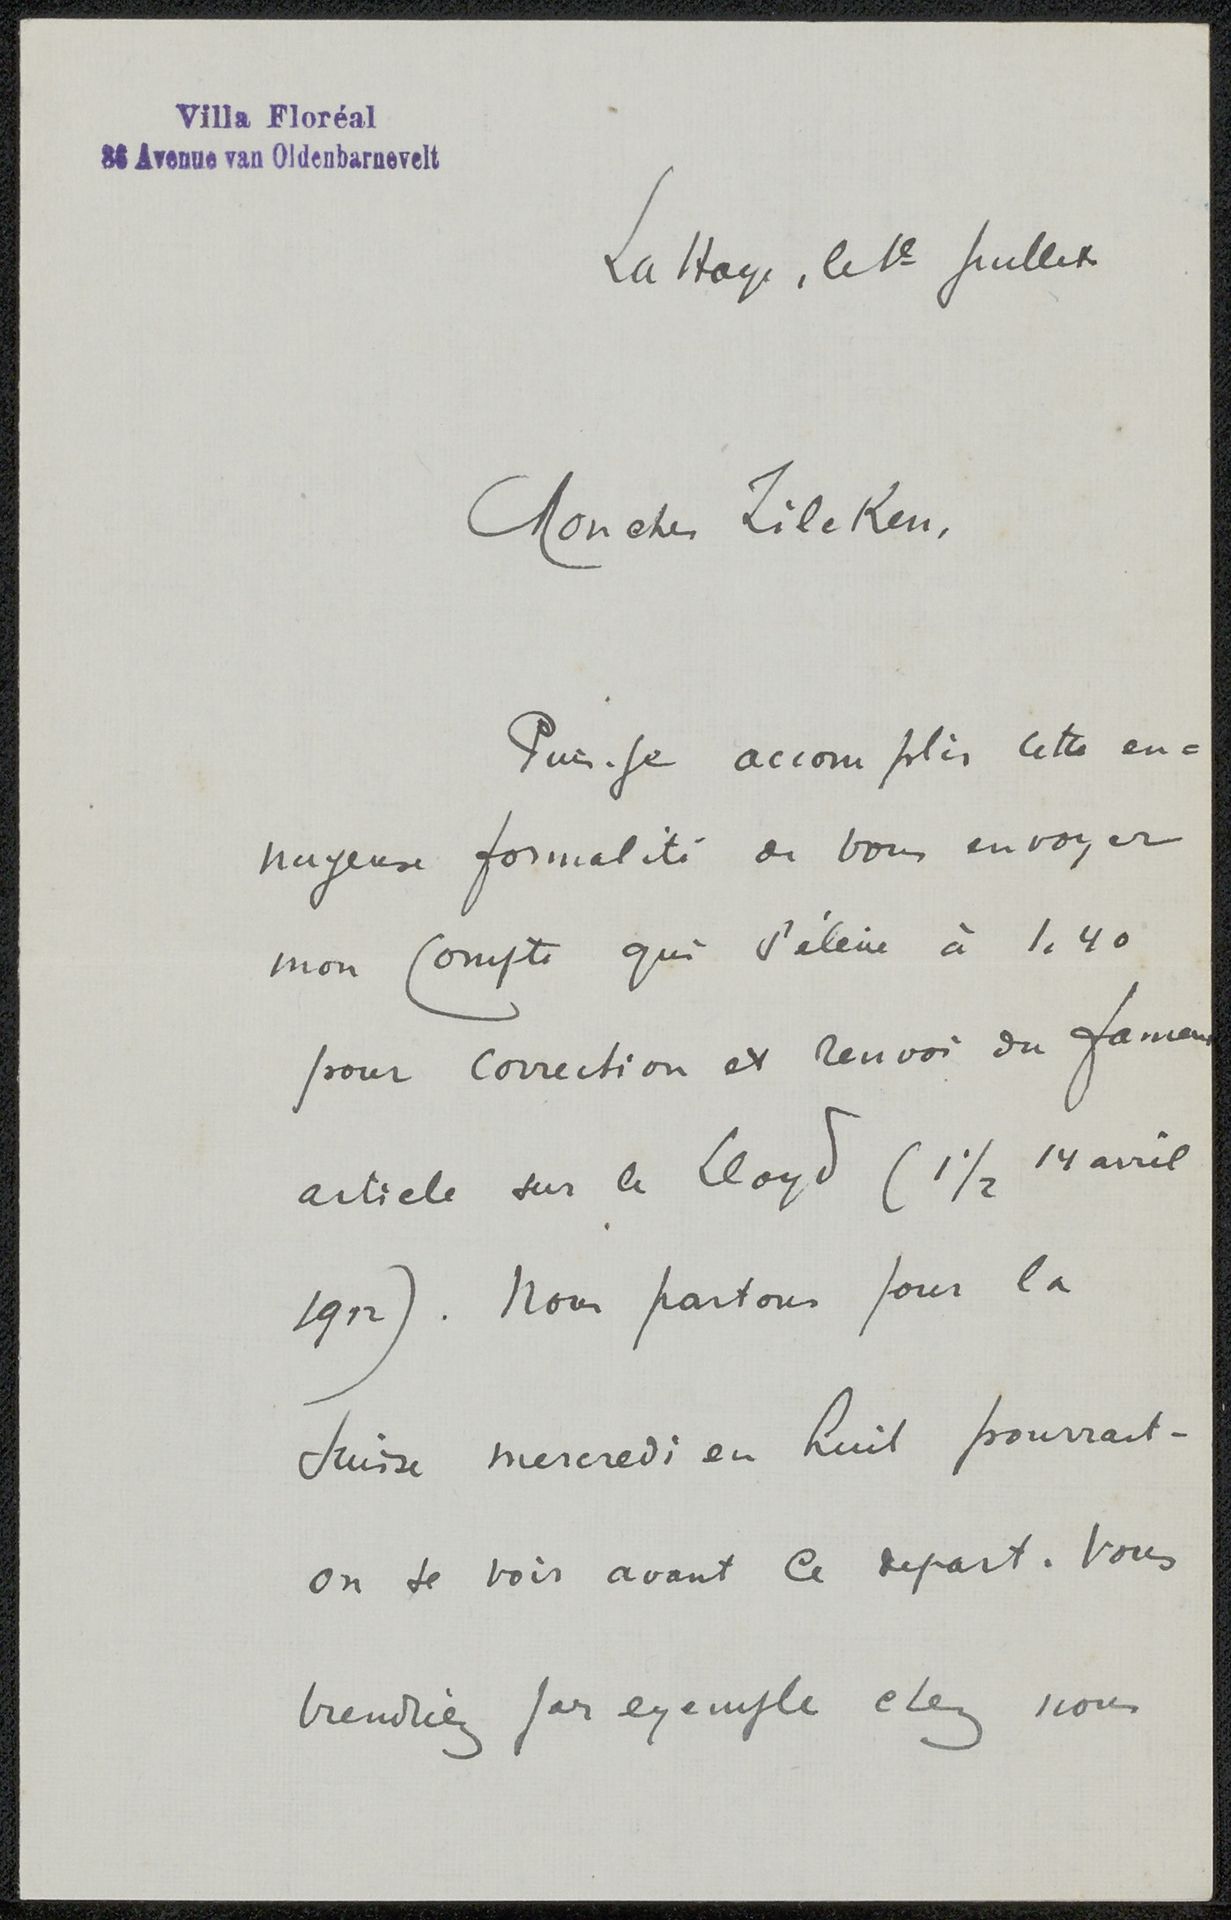 Villa Floréal
86 Avenue van Oldenbarnevelt
La Haye, le 1e juillet
Mon cher Zilcken,
Puis-je accomplir cette en=
nuyeuse formalité de vous envoyer
mon compte qui s'élève à 1.40
pour correction et renvoi du fameux
article sur le Lloyd (1 1/2 14 avril
1912). Nous partons pour la
Suisse mercredi en huit pourrait-
on se voir avant ce depart. Vous
viendriez par exemple chez nous